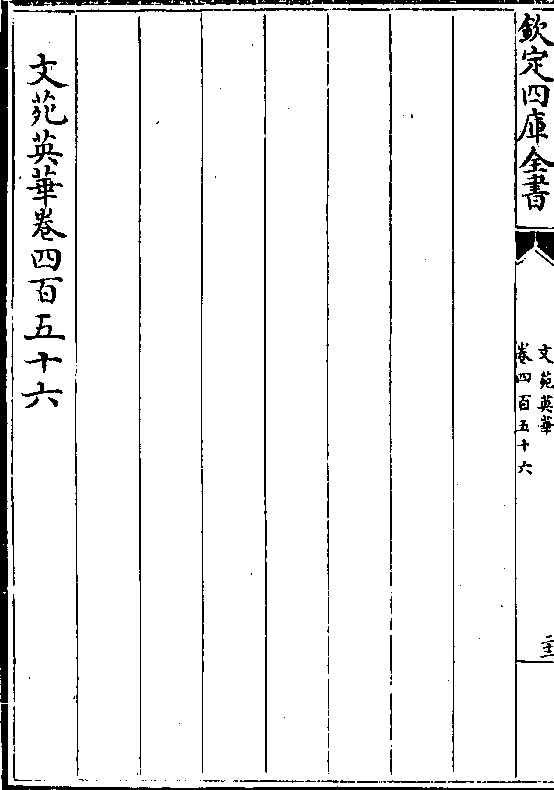 欽定四庫全書
文苑英華
卷四百五十六
文苑英華卷四百五十六